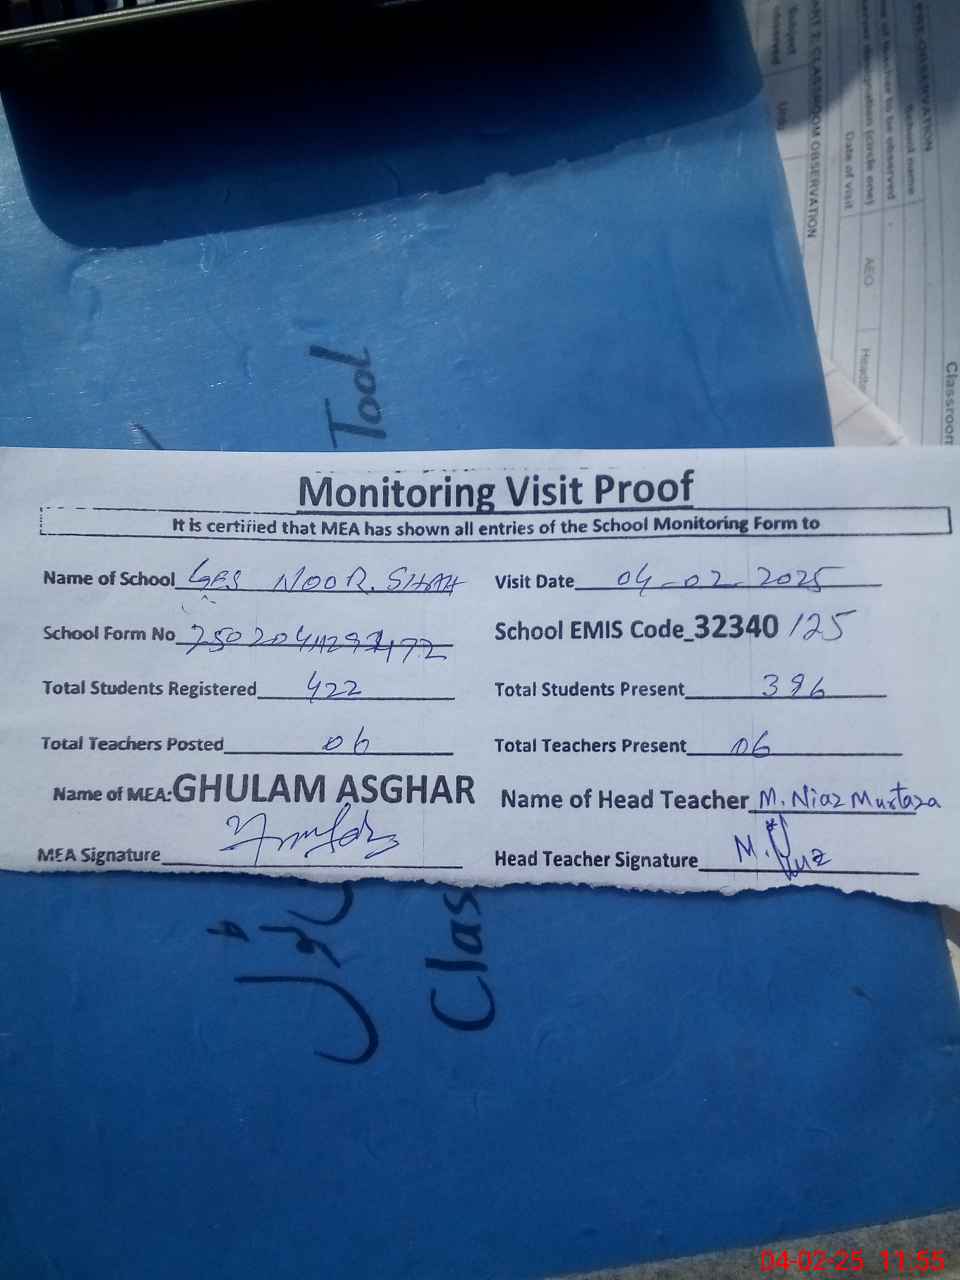 PRE-OBSERVATION
School name
Date of visit
AEO
PART 2: CLASSROOM OBSERVATION
Subject
observed
Classroom
Tool
Monitoring Visit Proof
It is certified that MEA has shown all entries of the School Monitoring Form to
Name of School GES NOOR. SHAH Visit Date 04-02-2025
School Form No School EMIS Code_32340125
Total Students Registered 422 Total Students Present 396
Total Teachers Posted 06 Total Teachers Present 06
Name of MEA: GHULAM ASGHAR Name of Head Teacher M. Niaz Murtaza
MEA Signature Head Teacher Signature
Clas
04-02-25 11:55